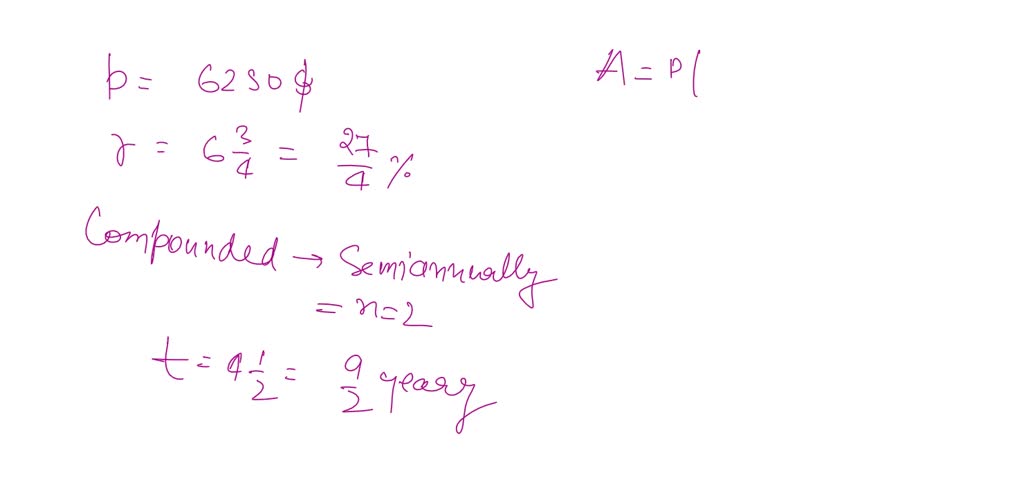 p = 6250 $
A = P(
r = 6 3/4 = 27/4 %
Compounded → Semiannually
= n=2
t = 4 1/2 = 9/2 years